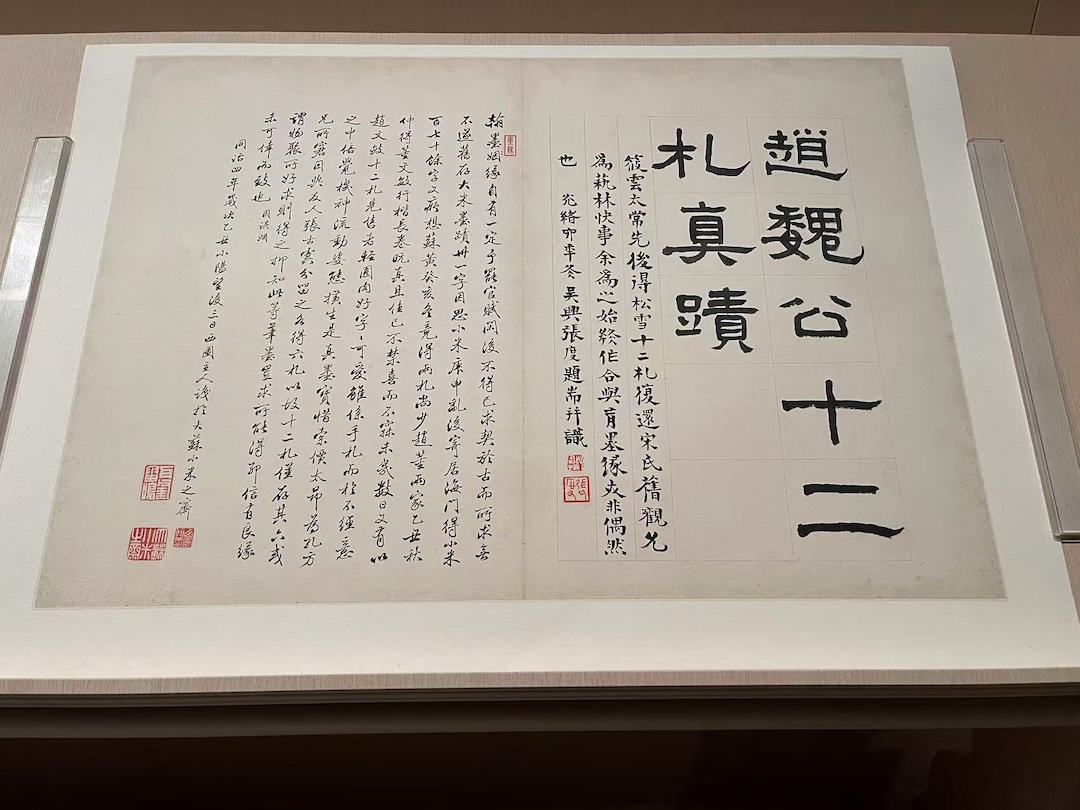 趙魏公十二
札真蹟
筱雲太常先後得松雪十二札復還宋氏舊觀允
為蓺林快事余為之始終作合與有墨緣夫非偶然
也 光緒卯年冬吳興張度題耑并識
翰墨姻緣自有一定予罷官賦閒後不得已求契於古而所求無
不遂舊存大米墨蹟卅一字因思小米庚申亂後寄居海門得小米
百七十餘字又癡想蘇黃癸亥冬竟得兩札尚少趙董兩家乙丑秋
仲得董文敏行楷長卷既真且佳已不禁喜而不寐未幾數日又有以
趙文敏十二札見售者輕圓肉好字字可愛雖係手札而極不經意
之中倍覺機神流動姿態橫生是真墨寶惜索價太昂為孔方
兄所窘因與友人張古雲分留之各得六札以故十二札僅存其六或
謂物聚所好求則得之抑知此等筆墨豈求所能得耶信有良緣
未可倖而致也
同治四年歲次乙丑小陽望後三日西圃主人識於大蘇小米之齋